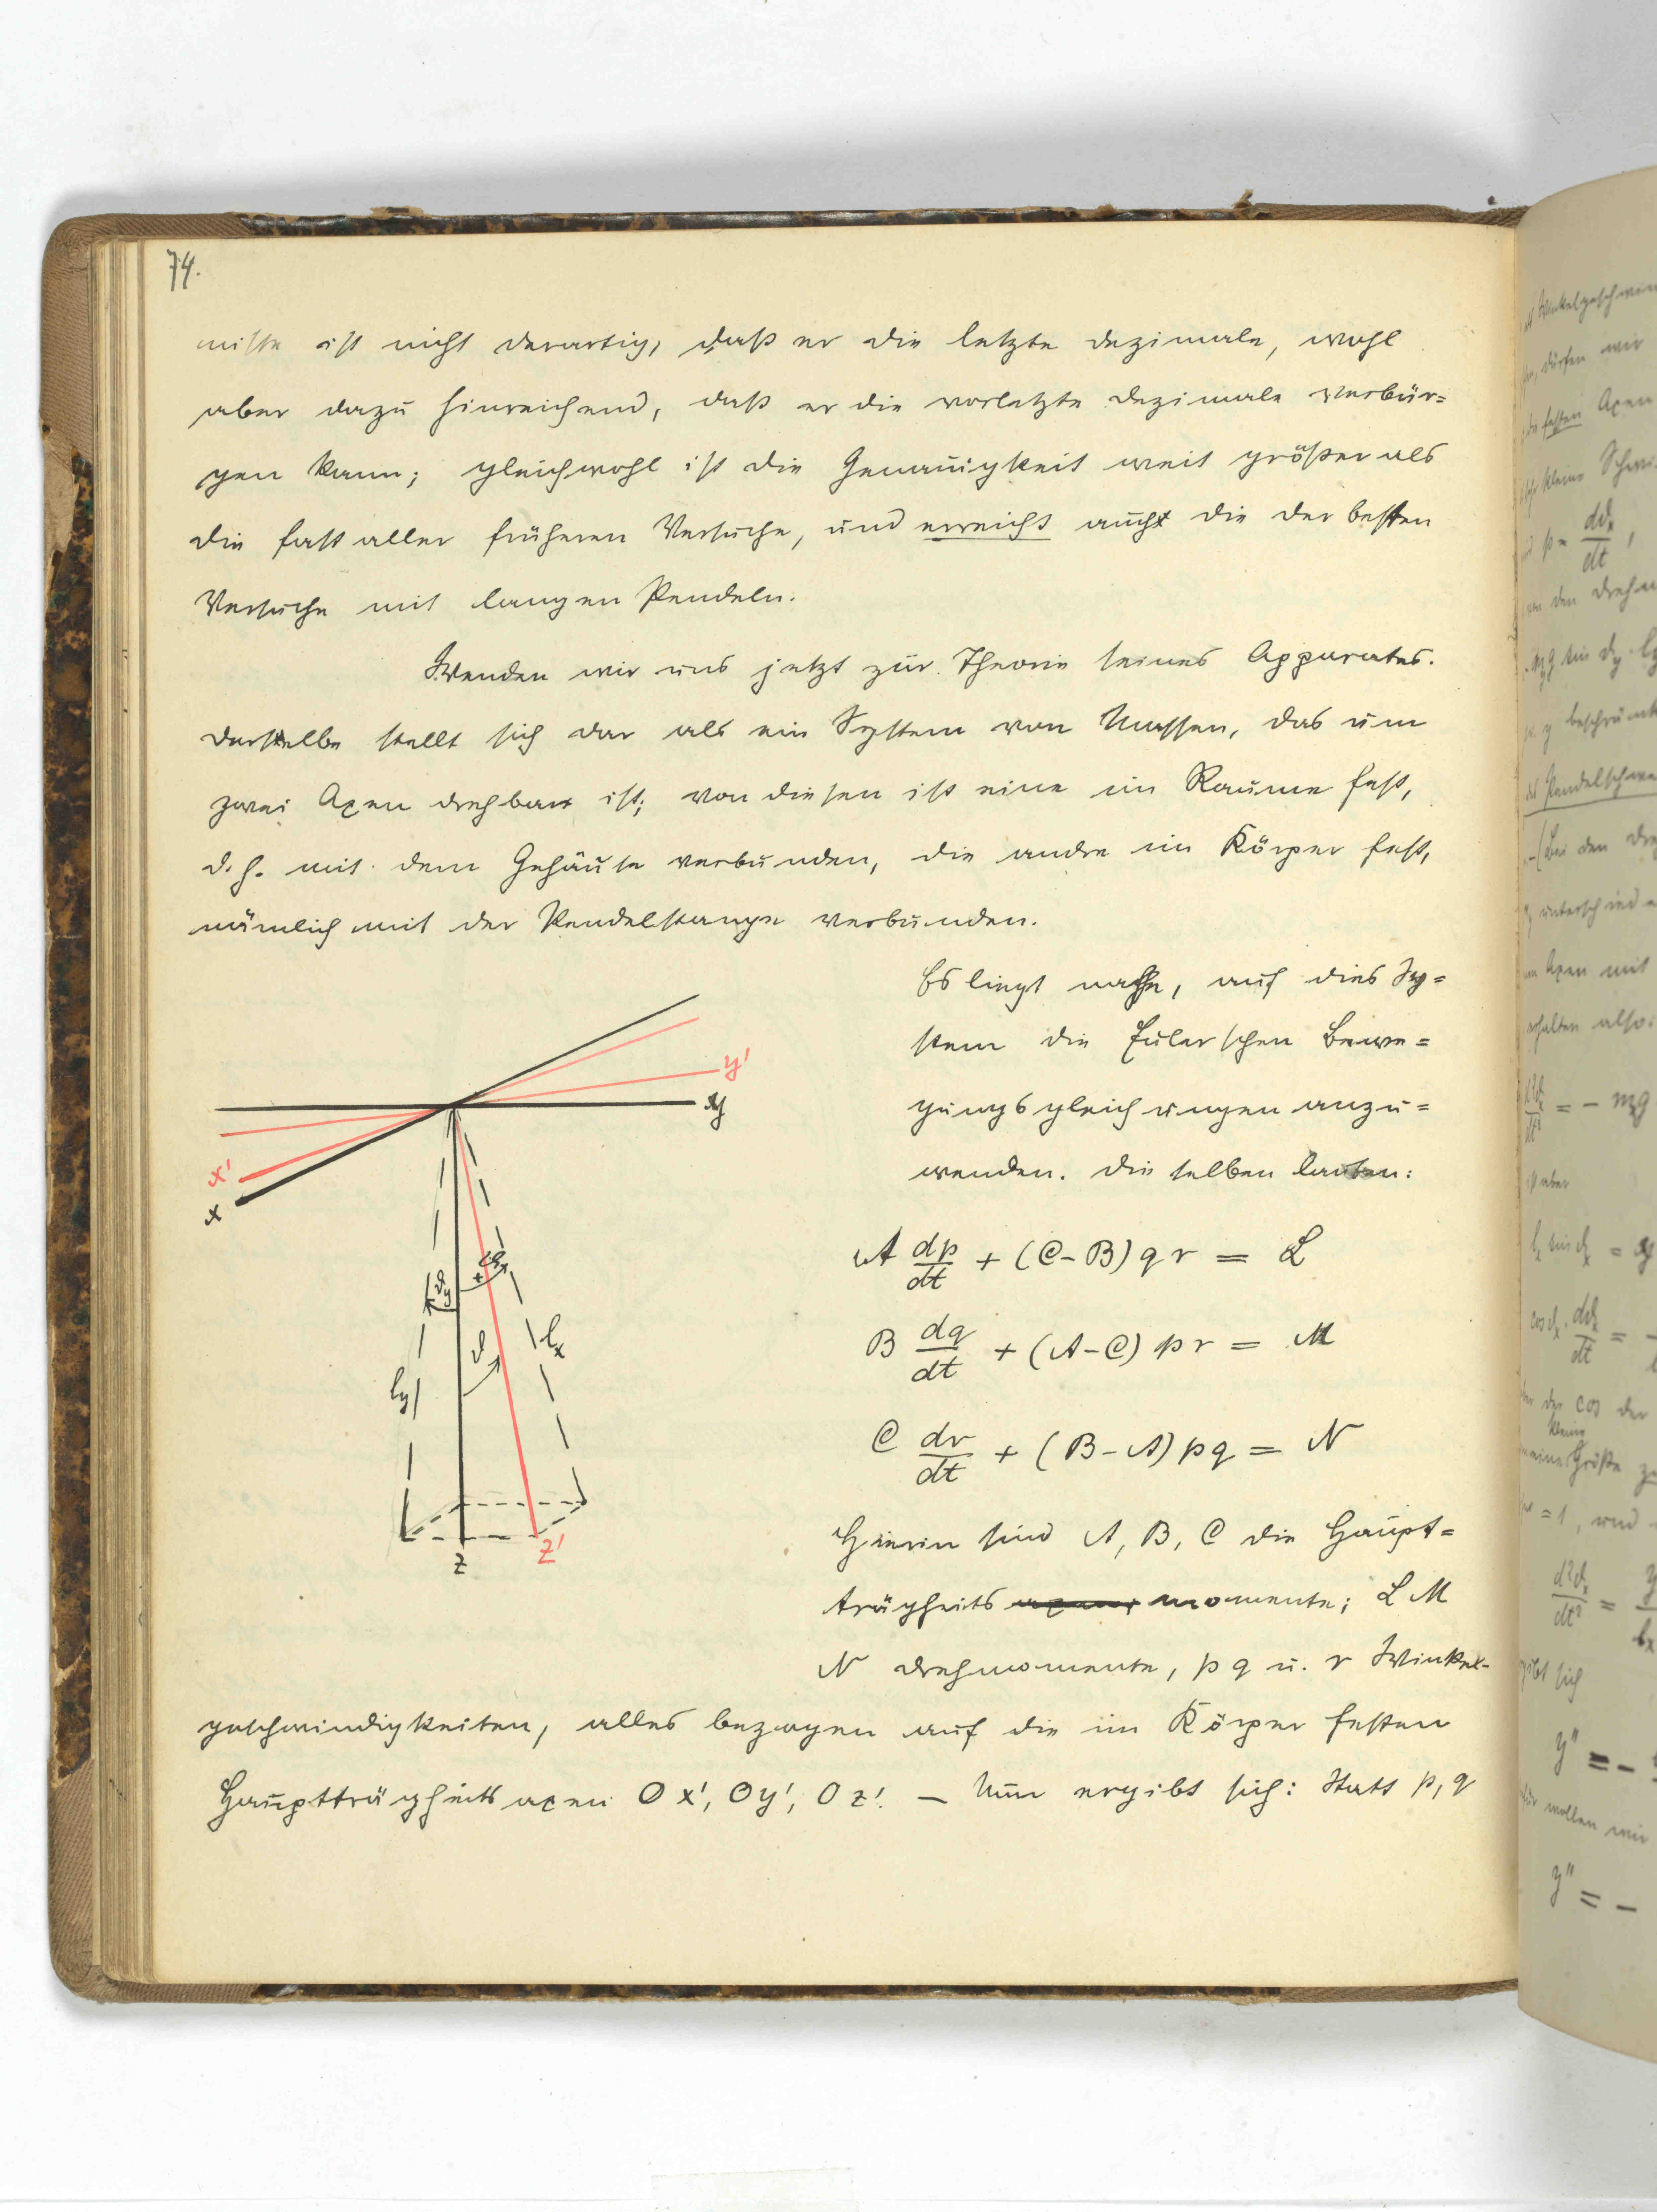 74.
nisse ist nicht derartig, daß er die letzte Dezimale, wohl
aber dazu hinreichend, daß er die vorletzte Dezimale verbür=
gen kann; gleichwohl ist die Genauigkeit weit größer als
die fast aller früheren Versuche, und erreicht auch die der besten
Versuche mit langen Pendeln.
Wenden wir uns jetzt zur Theorie seines Apparates.
Derselbe stellt sich dar als ein System von Massen, das um
zwei Axen drehbar ist; von diesen ist eine im Raume fest,
d. h. mit dem Gehäuse verbunden, die andre im Körper fest,
nämlich mit der Pendelstange verbunden.
Es liegt nahe, auf dies Sy=
stem die Eulerschen Bewe=
gungsgleichungen anzu=
wenden. Dieselben lauten:
y'
y
x'
x
ϑy
ϑx
ϑ
lx
ly
z
z'
A dp/dt + (C-B) q r = L
B dq/dt + (A-C) p r = M
C dr/dt + (B-A) p q = N
Hierin sind A, B, C die Haupt=
trägheits momente; L M
N Drehmomente, p q u. r Winkel-
geschwindigkeiten, alles bezogen auf die im Körper festen
Hauptträgheitsaxen O x', O y', O z'. — Nun ergibt sich: Statt p, q